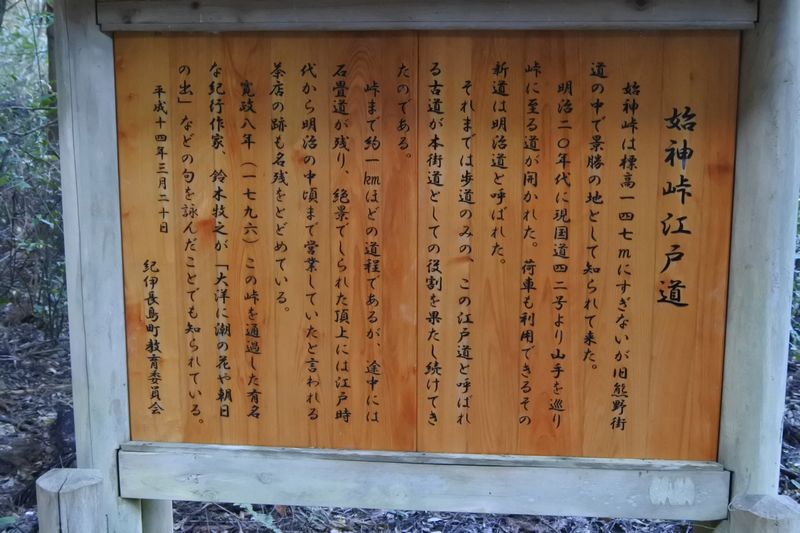 始神峠江戸道
始神峠は標高一四七mにすぎないが旧熊野街
道の中で景勝の地として知られて来た。
明治二〇年代に現国道四二号より山手を巡り
峠に至る道が開かれた。荷車も利用できるその
新道は明治道と呼ばれた。
それまでは歩道のみの、この江戸道と呼ばれ
る古道が本街道としての役割を果たし続けてき
たのである。
峠まで約一kmほどの道程であるが、途中には
石畳道が残り、絶景でしられた頂上には江戸時
代から明治の中頃まで営業していたと言われる
茶店の跡も名残をとどめている。
寛政八年(一七九六)この峠を通過した有名
な紀行作家 鈴木牧之が「大洋に潮の花や朝日
の出」などの句を詠んだことでも知られている。
平成十四年三月二十日
紀伊長島町教育委員会